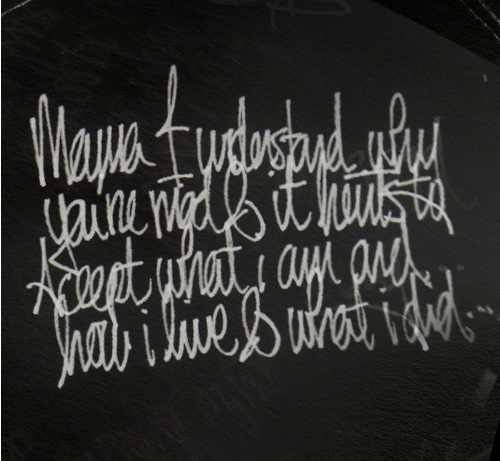 Mama I understand why
you're mad & it hurts to
Accept what i am and
how i live & what i did...